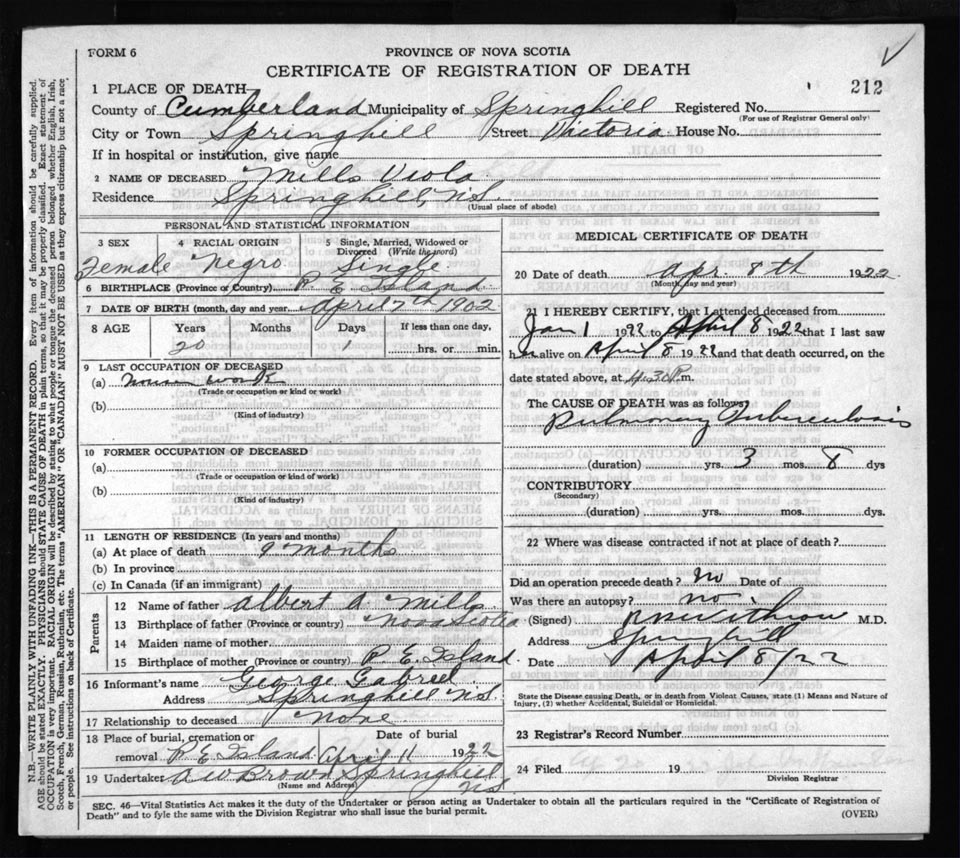 FORM 6
PROVINCE OF NOVA SCOTIA
CERTIFICATE OF REGISTRATION OF DEATH
212
1 PLACE OF DEATH
County of Cumberland Municipality of Springhill Registered No.
(For use of Registrar General only)
City or Town Springhill Street Victoria House No.
If in hospital or institution, give name
2 NAME OF DECEASED Mills Viola
Residence Springhill, N.S.
(Usual place of abode)
PERSONAL AND STATISTICAL INFORMATION
3 SEX 4 RACIAL ORIGIN 5 Single, Married, Widowed or Divorced (Write the word)
Female Negro Single
6 BIRTHPLACE (Province or Country) P. E. Island
7 DATE OF BIRTH (month, day and year) April 7th 1902
8 AGE Years Months Days If less than one day,
20 1 hrs. or min.
9 LAST OCCUPATION OF DECEASED
(a) House work
(Trade or occupation or kind or work)
(b)
(Kind of industry)
10 FORMER OCCUPATION OF DECEASED
(a)
(Trade or occupation or kind or work)
(b)
(Kind of industry)
11 LENGTH OF RESIDENCE (In years and months)
(a) At place of death 9 months
(b) In province
(c) In Canada (if an immigrant)
Parents
12 Name of father Albert A. Mills
13 Birthplace of father (Province or country) Nova Scotia
14 Maiden name of mother
15 Birthplace of mother (Province or country) P. E. Island
16 Informant's name George Gabriel
Address Springhill N.S.
17 Relationship to deceased None
18 Place of burial, cremation or Date of burial
removal P. E. Island April 11 1922
19 Undertaker A W Brown Springhill
(Name and Address) N.S.
MEDICAL CERTIFICATE OF DEATH
20 Date of death Apr. 8th 1922
(Month, day and year)
21 I HEREBY CERTIFY, that I attended deceased from
Jan 1 1922 to April 8 1922 that I last saw
h er alive on April 8 1922 and that death occurred, on the
date stated above, at 4.30 P. m.
The CAUSE OF DEATH was as follows
Pulmonary Tuberculosis
(duration) yrs. 3 mos 8 dys
CONTRIBUTORY
(Secondary)
(duration) yrs. mos. dys
22 Where was disease contracted if not at place of death?
Did an operation precede death? No Date of
Was there an autopsy? no
(Signed) M.D.
Address Springhill
Date April 8/22
State the Disease causing Death, or in death from Violent Causes, state (1) Means and Nature of
Injury, (2) whether Accidental, Suicidal or Homicidal.
23 Registrar's Record Number
24 Filed 19
Division Registrar
SEC. 46—Vital Statistics Act makes it the duty of the Undertaker or person acting as Undertaker to obtain all the particulars required in the "Certificate of Registration of
Death" and to fyle the same with the Division Registrar who shall issue the burial permit.
(OVER)
N.B.—WRITE PLAINLY WITH UNFADING INK—THIS IS A PERMANENT RECORD. Every item of information should be carefully supplied.
AGE should be stated EXACTLY. PHYSICIANS should STATE CAUSE OF DEATH in plain terms, so that it may be properly classified. Exact statement of
OCCUPATION is very important. RACIAL ORIGIN will be described by stating to what people or tongue the deceased person belonged whether English, Irish,
Scotch, French, German, Russian, Ruthenian, etc. The terms "AMERICAN" OR "CANADIAN" MUST NOT BE USED as they express citizenship but not a race
or people. See instructions on back of Certificate.